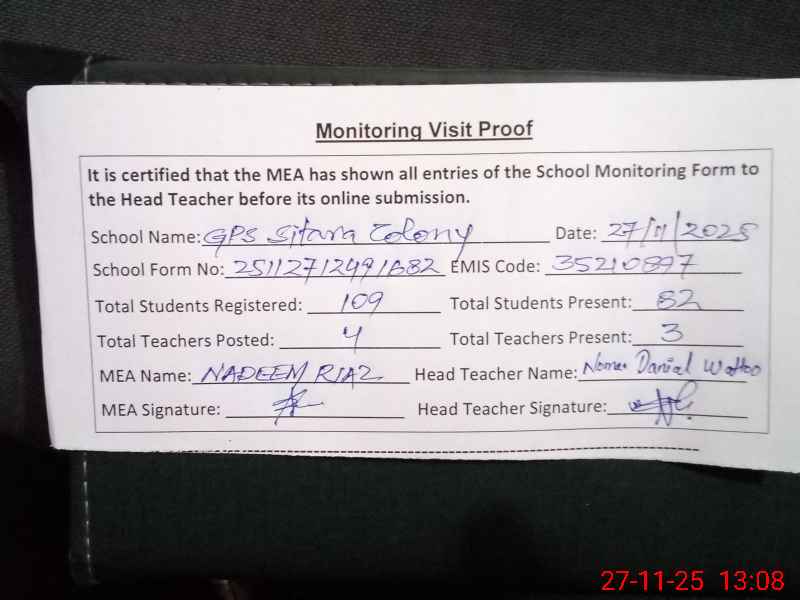 Monitoring Visit Proof
It is certified that the MEA has shown all entries of the School Monitoring Form to
the Head Teacher before its online submission.
School Name: GPS Sitara Colony Date: 27/11/2025
School Form No: EMIS Code: 35210897
Total Students Registered: 109 Total Students Present: 82
Total Teachers Posted: 4 Total Teachers Present: 3
MEA Name: NADEEM RIAZ Head Teacher Name: Danial Wattoo
MEA Signature: Head Teacher Signature:
27-11-25 13:08